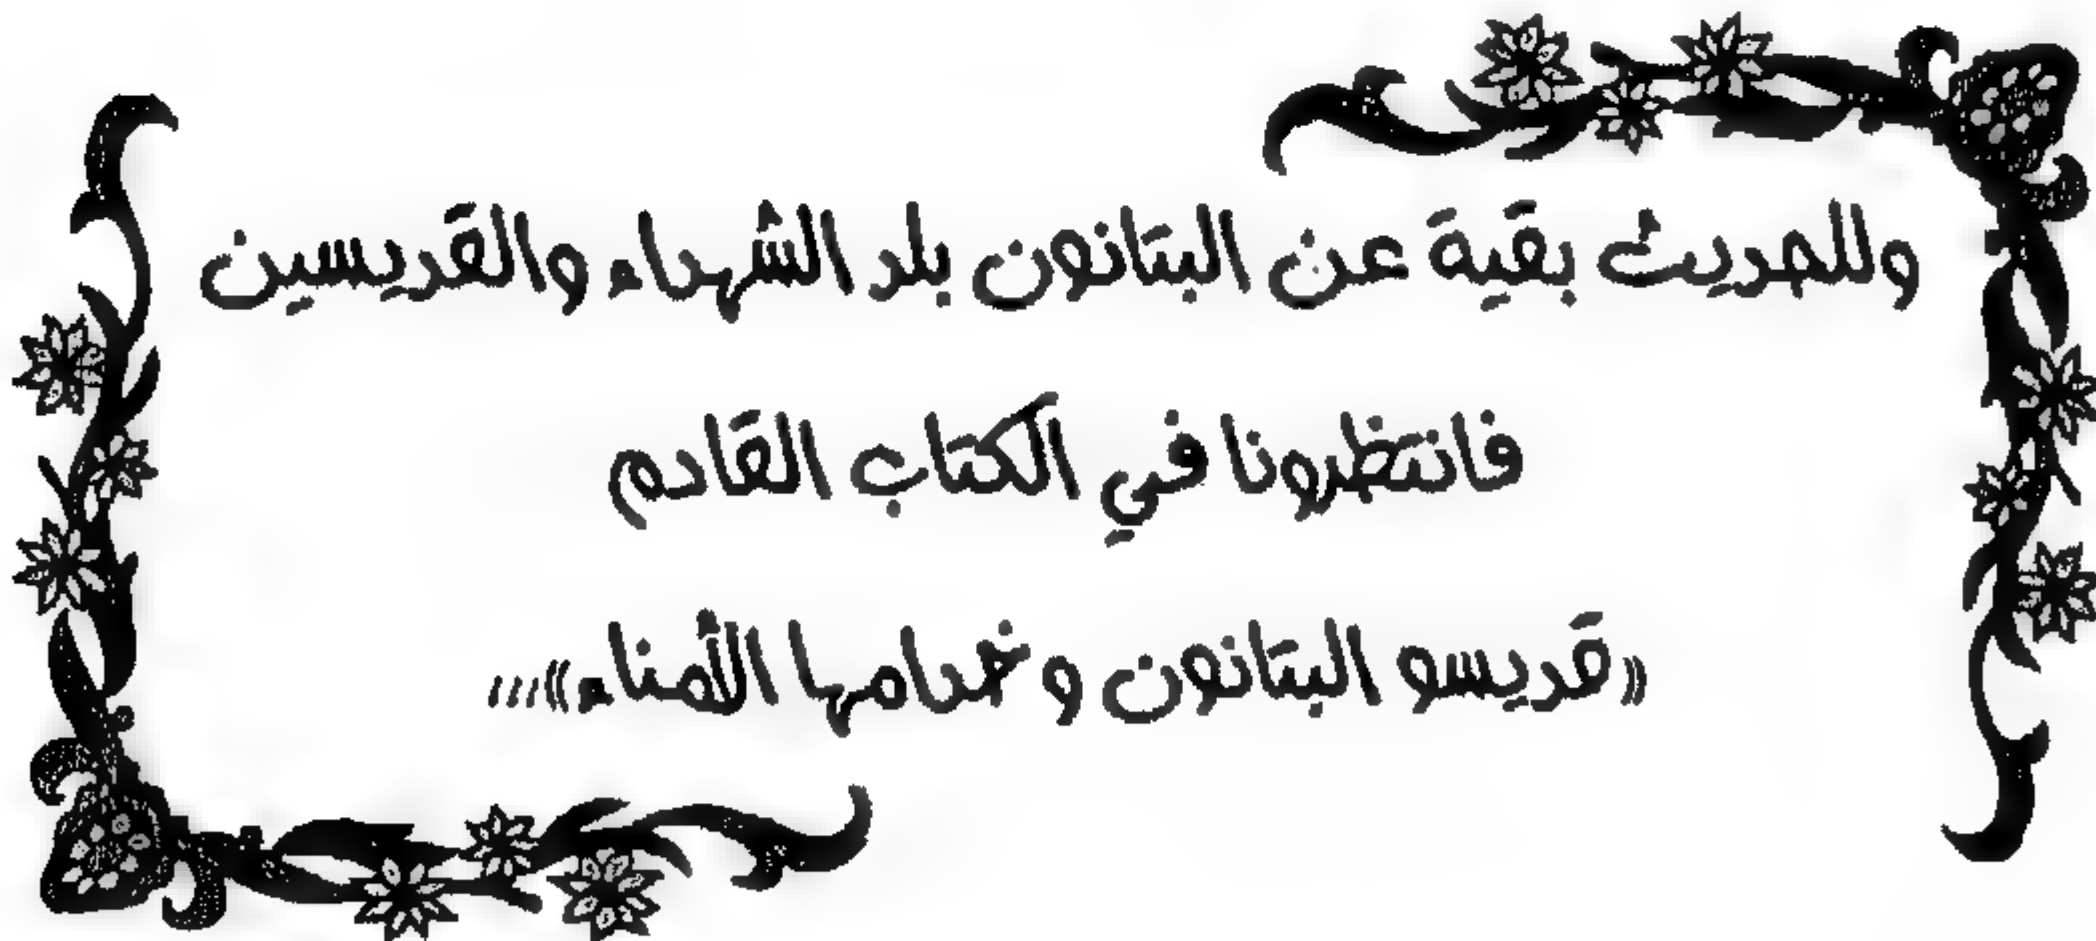 وللحديث بقية عن البتانون بلد الشهداء والقديسين
فانتظرونا في الكتاب القادم
«قديسو البتانون وخدامها الأمناء»...